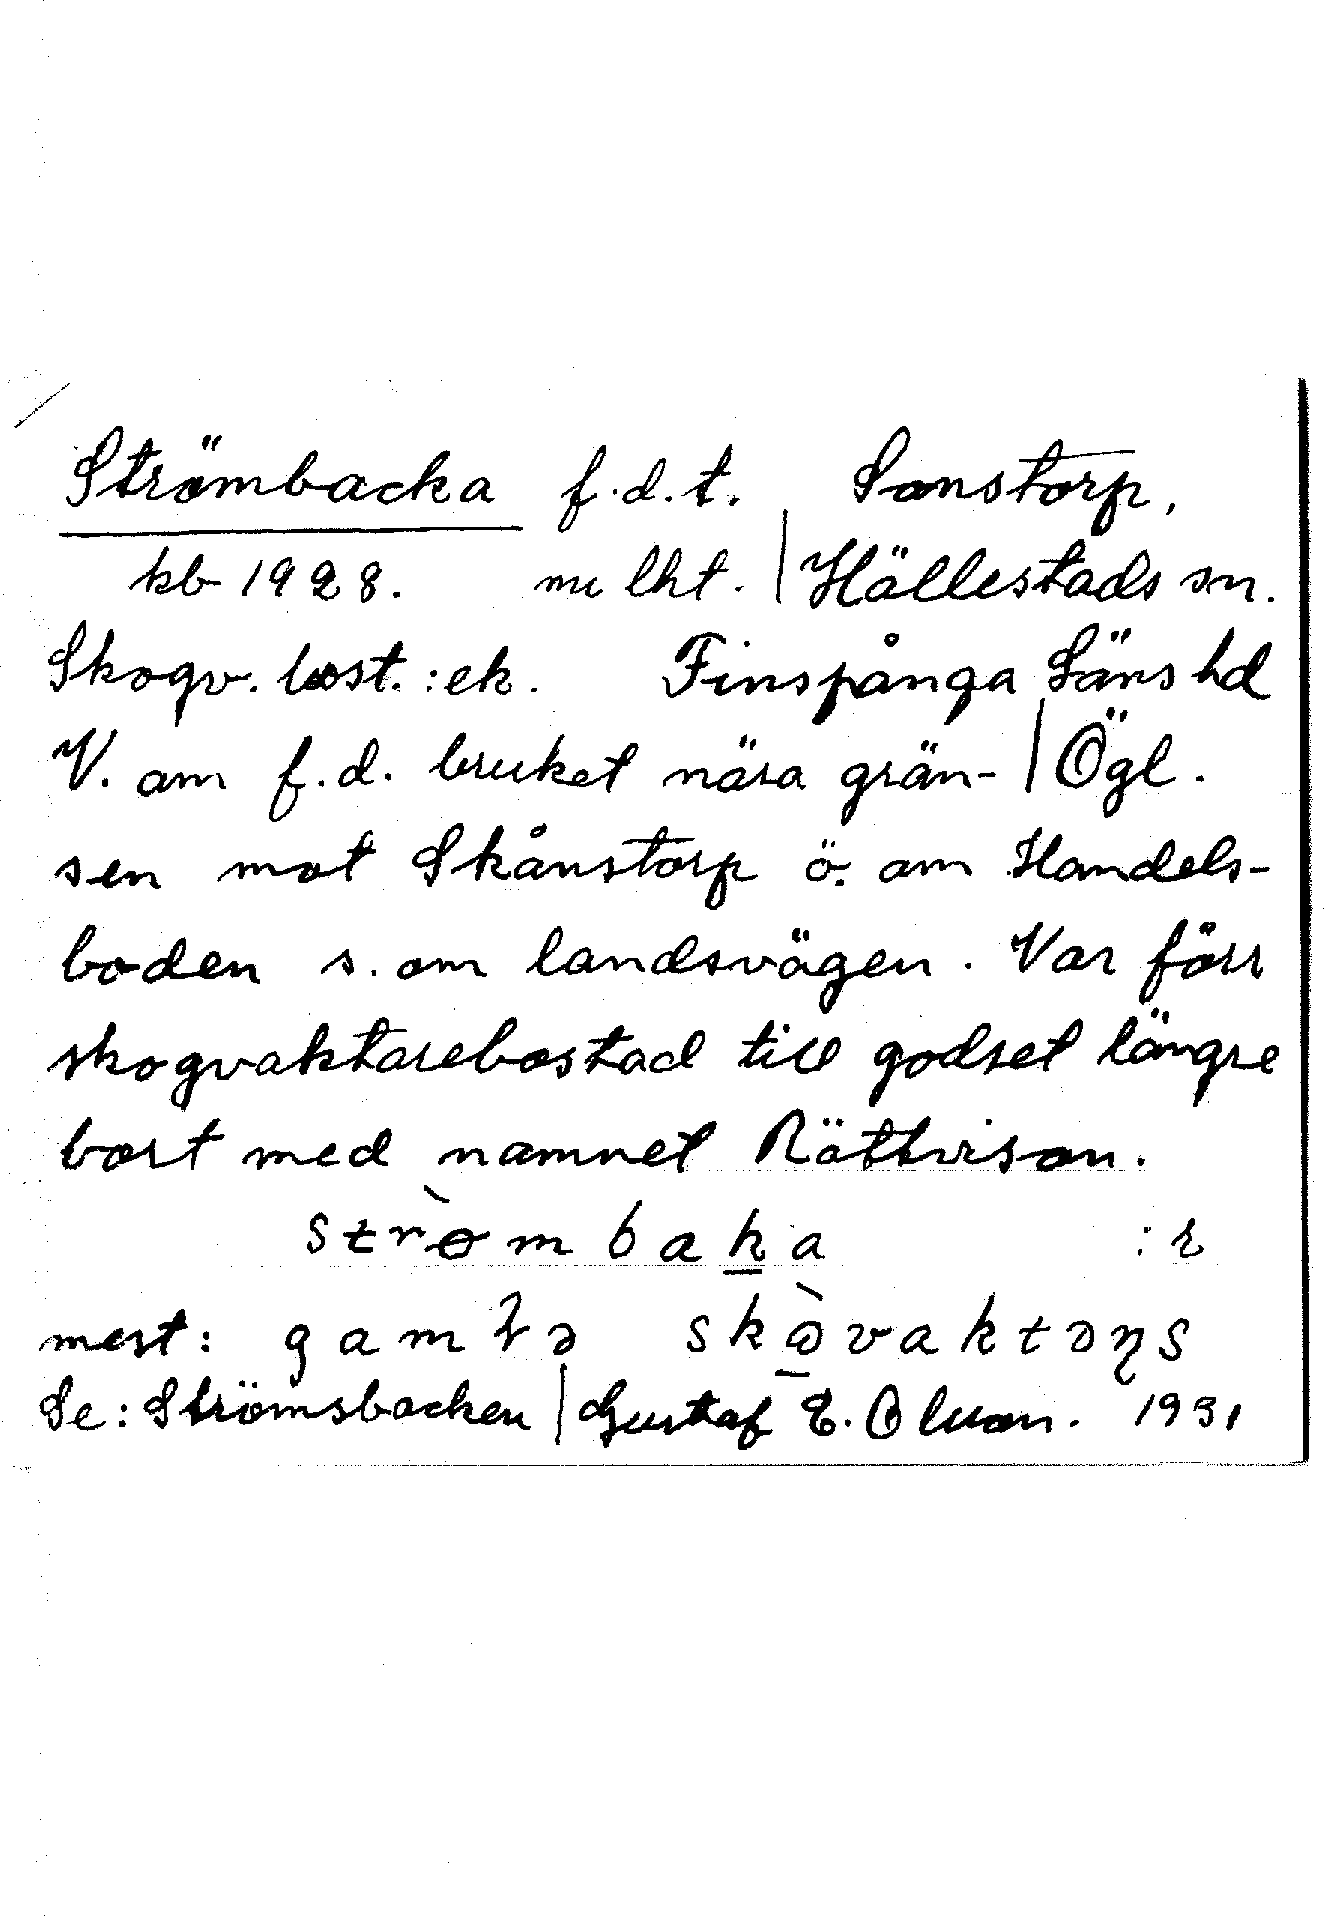 Strömbacka f.d.t. Sonstorp,
kb 1928. nu lht. | Hällestads sn.
Skogv. bost. :ek. Finspånga Läns hd
V. om f.d. bruket nära grän- | Ögl.
sen mot Skånstorp ö. om Handels-
boden s. om landsvägen. Var förr
skogvaktarebostad till godset längre
bort med namnet
strø̀mbaka :r
mest: gamɫə skòvaktəɳs
Se: Strömsbacken | Gustaf E. Olsson. 1931